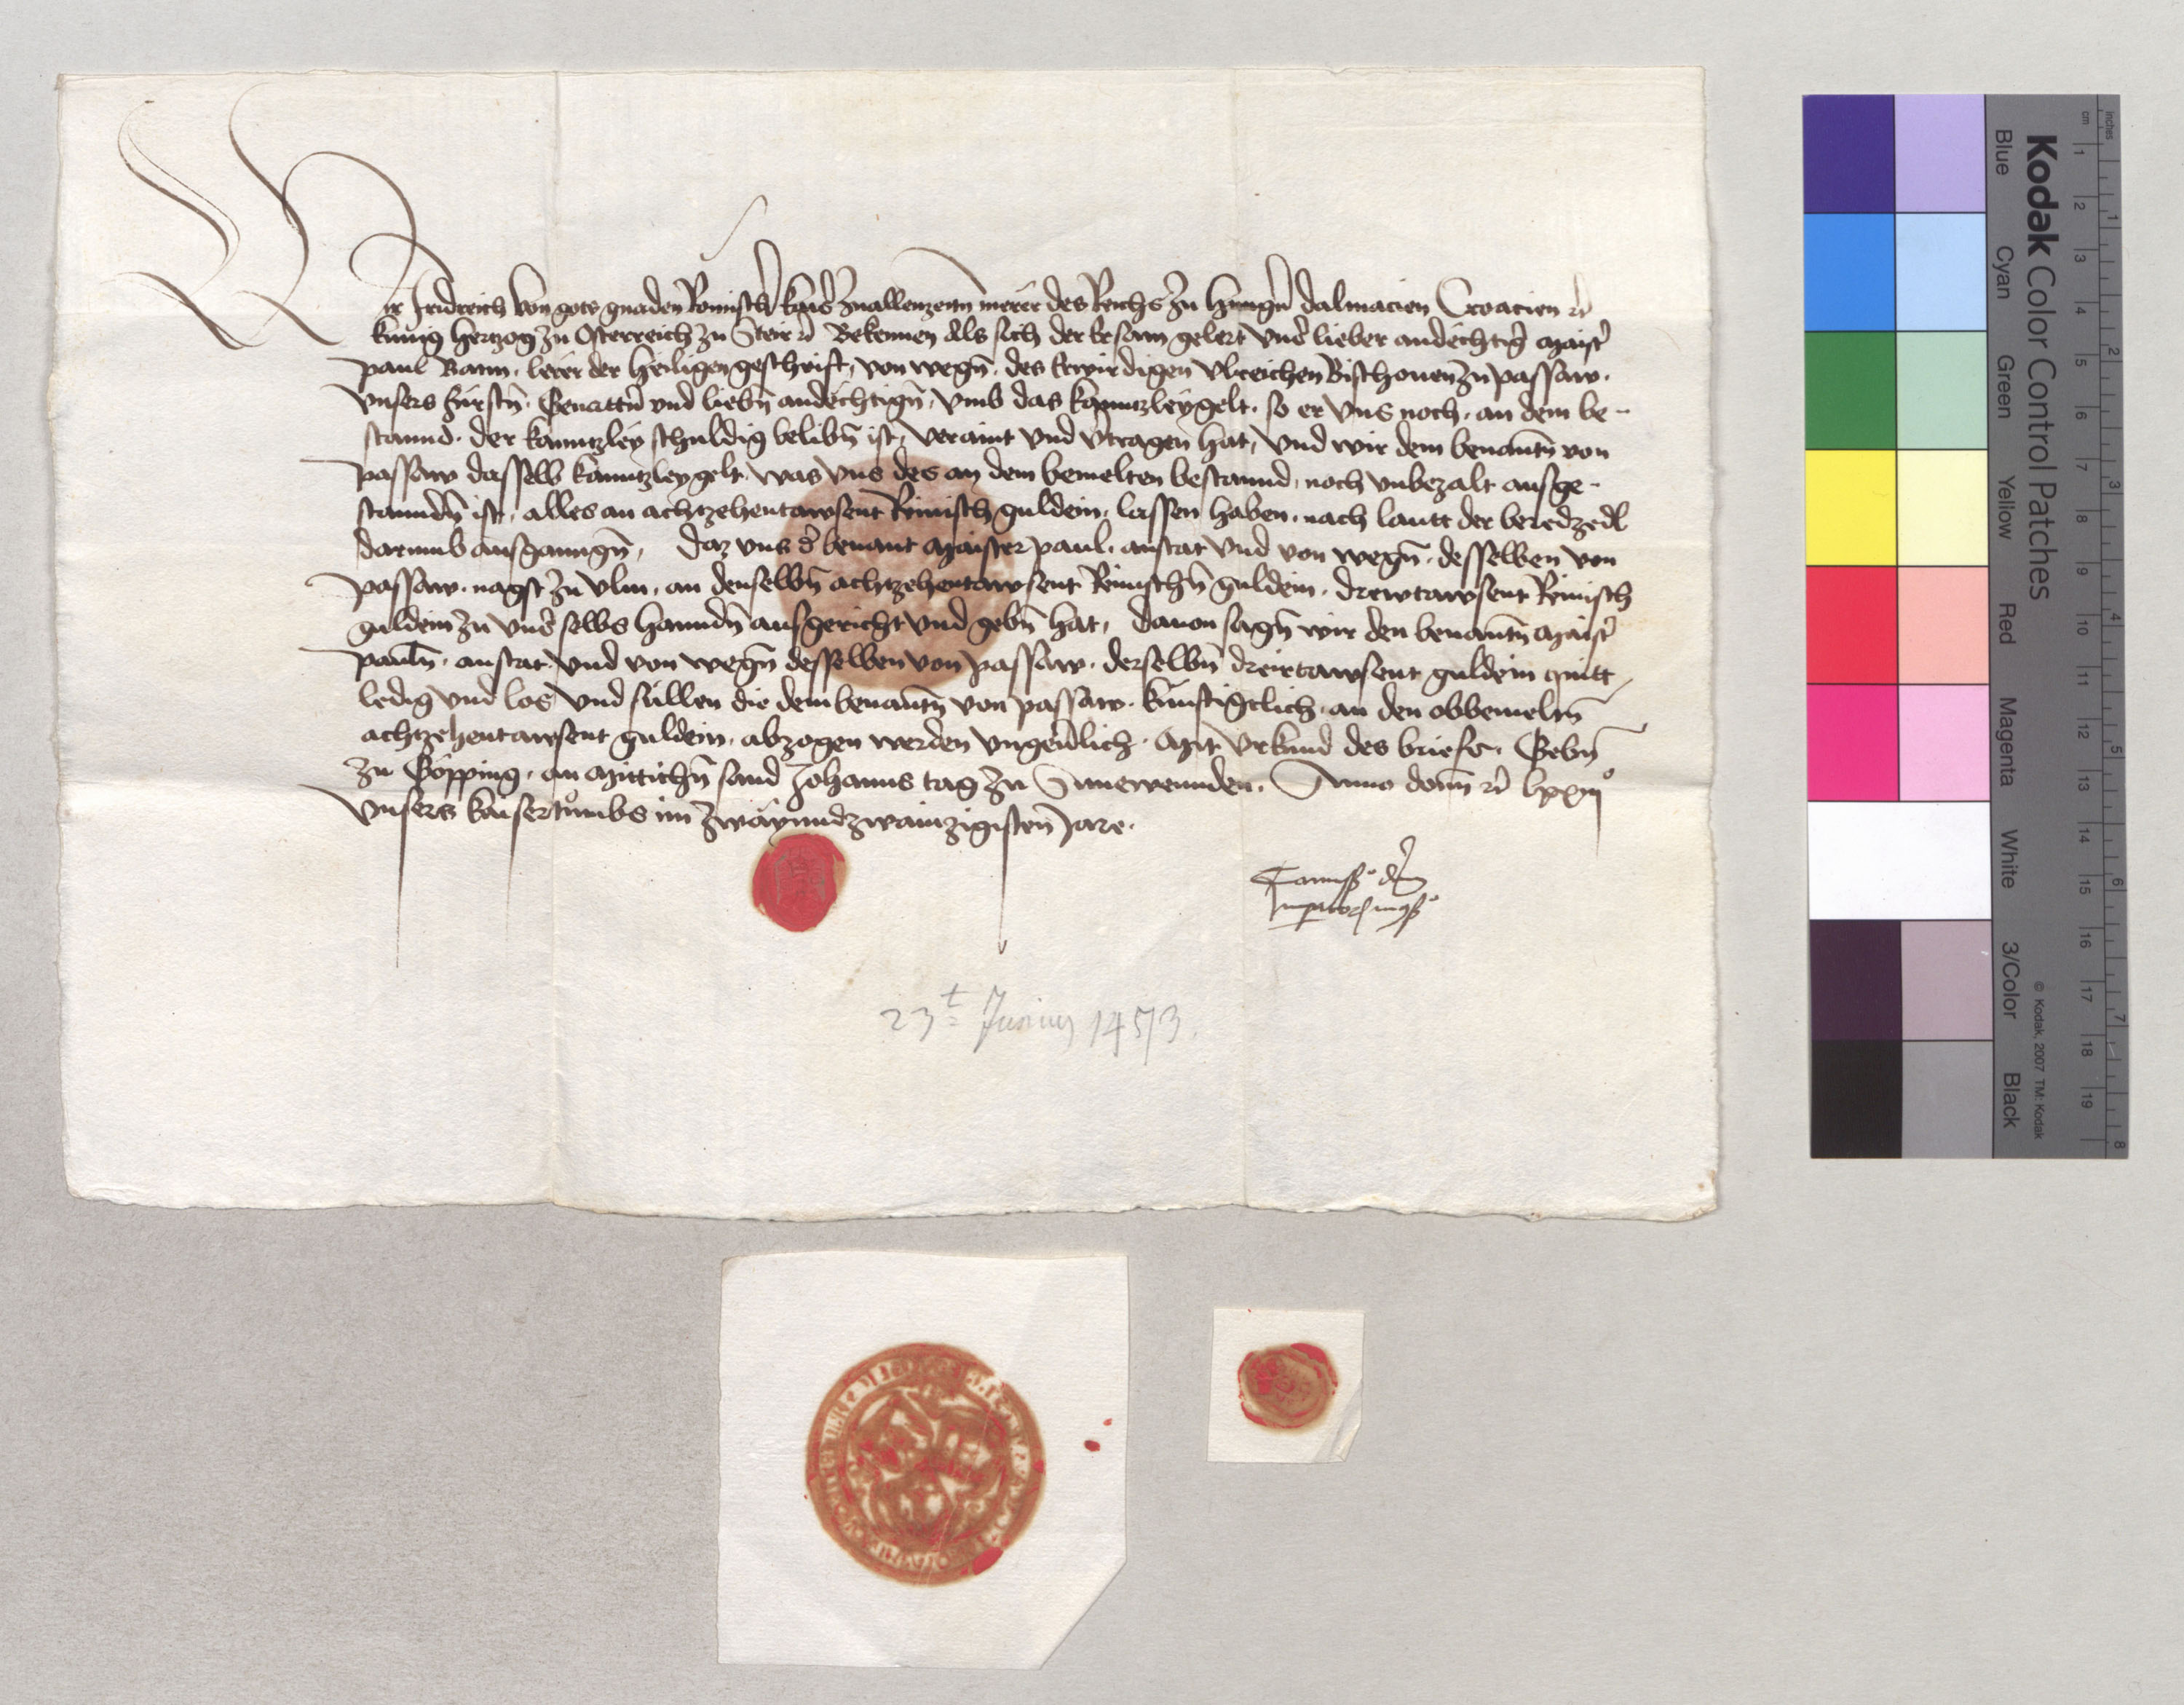 Wir Fridreich von gots gnaden Romischer kaiser zuallenzeitn merer des Reichs zu Hungern dalmacien Croacien rc
kunig hertzog zu Osterreich zu Steir rc Bekennen als sich der ersam gelert unser lieber andechtiger maister
paul Bann. lerer der heiligen geschrift, von wegn. des Erwirdigen Vlreichen Bischouen zu passaw.
vnsers fürstn. Geuattern und liebn andechtign, vmb das kanntzleygelt. so er vns noch. an dem be-
stannd. der kanntzley schuldig belibn ist, veraint vnd vertragen hat, vnd wir dem benantn von
passaw dasselb kanntzleygelt, was vns des an dem bemelten bestannd, noch vnbezalt ausge-
stanndn ist, alles an achtzehentawsent Reinisch guldein, lassen haben, nach lautt der beredzedl
darumb ausganngn, Daz vns der benant maister paul. anstat vnd von wegn. desselben von
passaw. nagst zu vlm. an denselbn achtzehentawsent Reinischn guldein. drewtawsent Reinisch
guldein zu vnser selbs hanndn ausgericht vnd gebn hat, dauon sagn wir den benantn maister
pauln. anstat vnd von wegn desselben von passaw. derselbn dreirtawsent guldein quitt
ledig vnd los vnd sullen die dem benantn von passaw. künftigclich. an den obbemeltn
achtzehentawsent guldein. abzogen werden vngeuerlich. Mit vrkund des briefs. Gebn
zu Gopping. an Mittichn sand Johanns tag zu Sunewennden. Anno domini rc lxxiijo
vnsers kaisertumbs im zwayundzwainzigisten Jare.
Commissio domini
Imperatoris in consilio
23t Junius 1473.
Kodak Color Control Patches
© Kodak, 2007 TM: Kodak
Blue Cyan Green Yellow Red Magenta White 3/Color Black
cm 1 2 3 4 5 6 7 8 9 10 11 12 13 14 15 16 17 18 19
inches 1 2 3 4 5 6 7 8